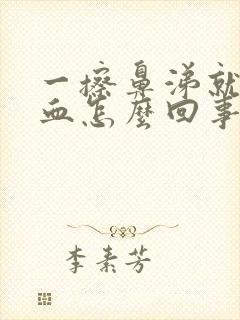 一擦鼻涕就
血怎麼回事
李素芳